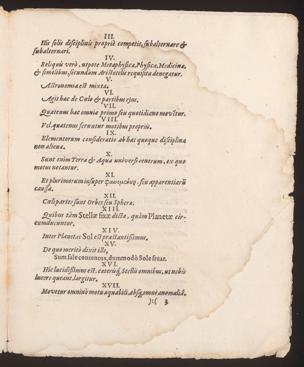 III.
His solis disciplinis propriè competit, subalternare &
subalternari.
IV.
Reliquis verò, utpote Metaphysicæ, Physicæ, Medicinæ,
& similibus, secundum Aristotelis requisita denegatur.
V.
Astronomia est mixta.
VI.
Agit hæc de Cœlo & partibus ejus.
VII.
Quatenus hæc omnia primo seu quotidiano movētur.
VIII.
Vel quatenus feruntur motibus propriis.
IX.
Elementorum consideratio ab hac quoque disciplina
non aliena.
X.
Sunt enim Terra & Aqua universi centrum, ex quo
motus notantur.
XI.
Et plurimorum insuper φαινομένων, seu apparentiarū
causa.
XII.
Cœli partes sunt Orbes seu Sphæræ.
XIII.
Quibus tàm Stellæ fixæ dictæ, quàm Planetæ cir-
cumducuntur.
XIV.
Inter Planetas Sol est præstantissimus.
XV.
De quo meritò dixit ille,
Sum sole contentus, dummodò Sole fruar.
XVI.
Hic lucidissimus est, cæterisq; Stellis omnibus, ut nobis
lucere queant, largitur.
XVII.
Movetur omninò motu æquabili, absq; omni anomaliâ.
)( 3